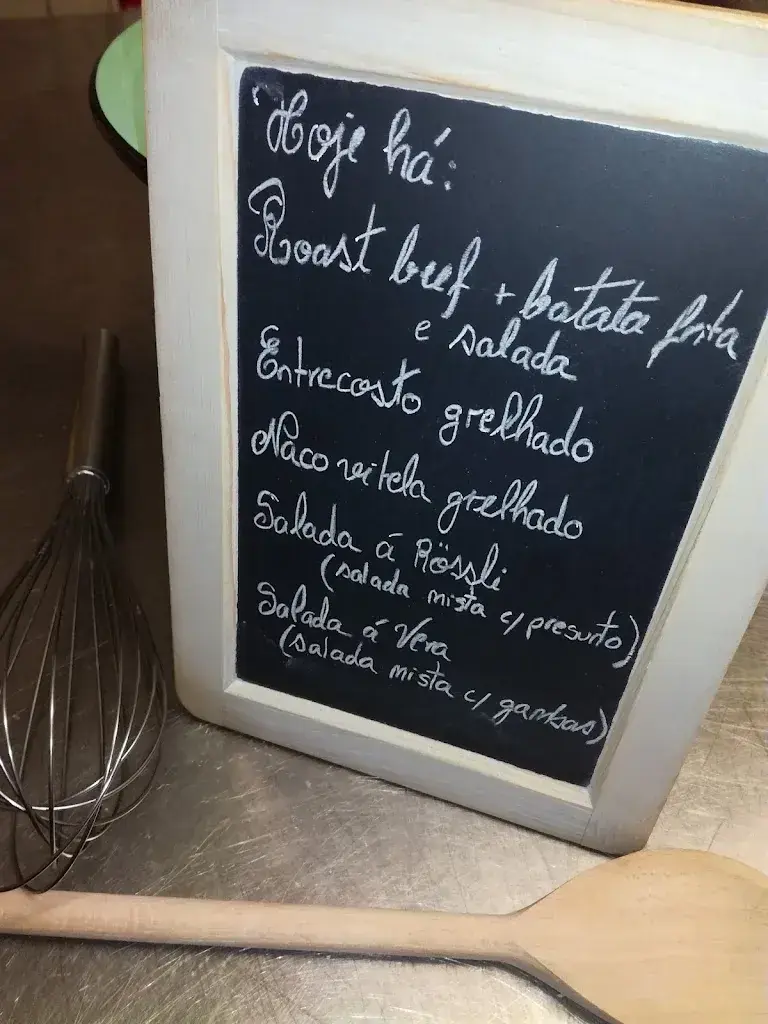 Hoje há:
Roast beef + batata frita
e salada
Entrecosto grelhado
Naco vitela grelhado
Salada á Rössli
(salada mista c/ presunto)
Salada á Vera
(salada mista c/ gambas)